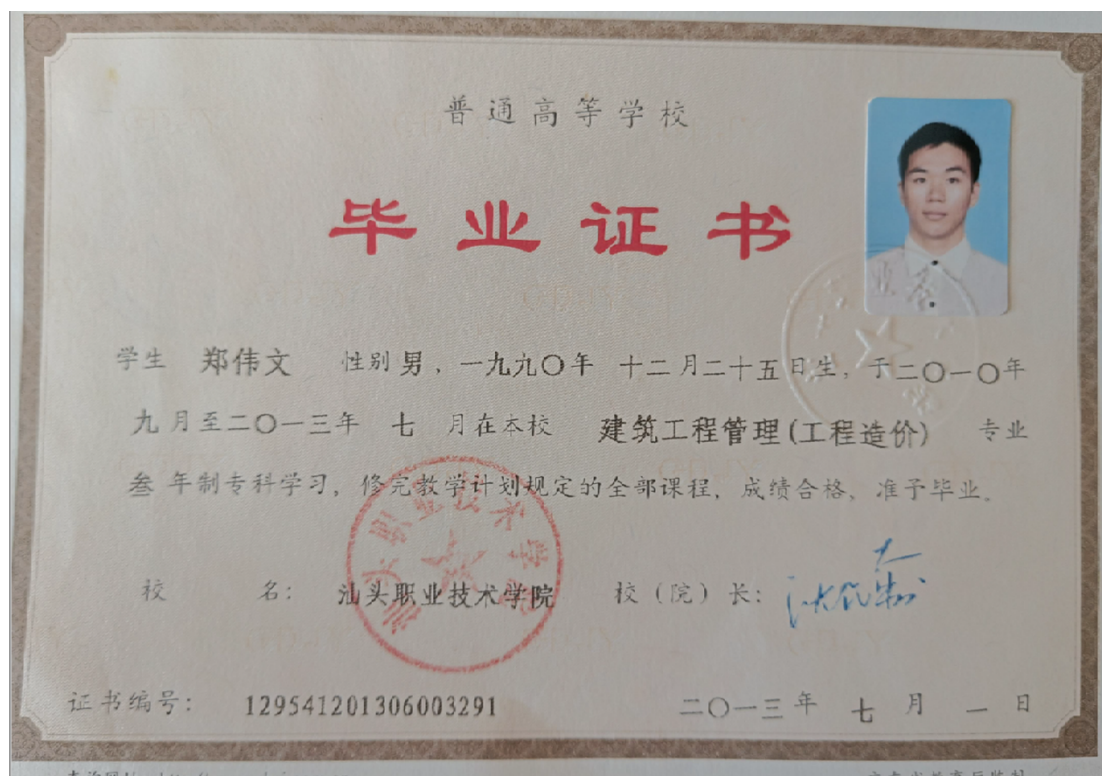 普通高等学校
毕业证书
学生 郑伟文 性别 男，一九九〇年 十二月二十五日生，于二〇一〇年
九月至二〇一三年 七 月在本校 建筑工程管理(工程造价) 专业
叁 年制专科学习，修完教学计划规定的全部课程，成绩合格，准予毕业。
校 名： 汕头职业技术学院 校（院）长：
汕头职业技术学院
证书编号： 129541201306003291 二〇一三年 七 月 一 日